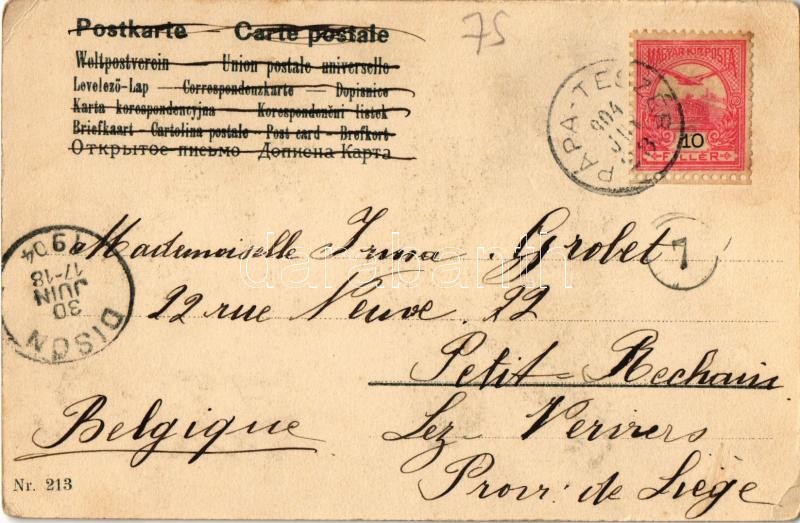 75
Postkarte — Carte postale
Weltpostverein — Union postale universelle
Levelező-Lap — Correspondenzkarte — Dopisnice
Karta korespondencyjna — Korespondenční lístek
Briefkaart — Cartolina postale — Post card — Brefkort
Открытое письмо — Дописна Карта
MAGYAR KIR. POSTA
10
FILLÉR
PÁPA-TESZÉR
904
Mademoiselle Irma Grobet
22 rue Neuve 22
Petit-Rechain
Lez-Verviers
Prov: de Liège
Belgique
DISON
30
JUIN
17-18
1904
7
darabanth
Nr. 213